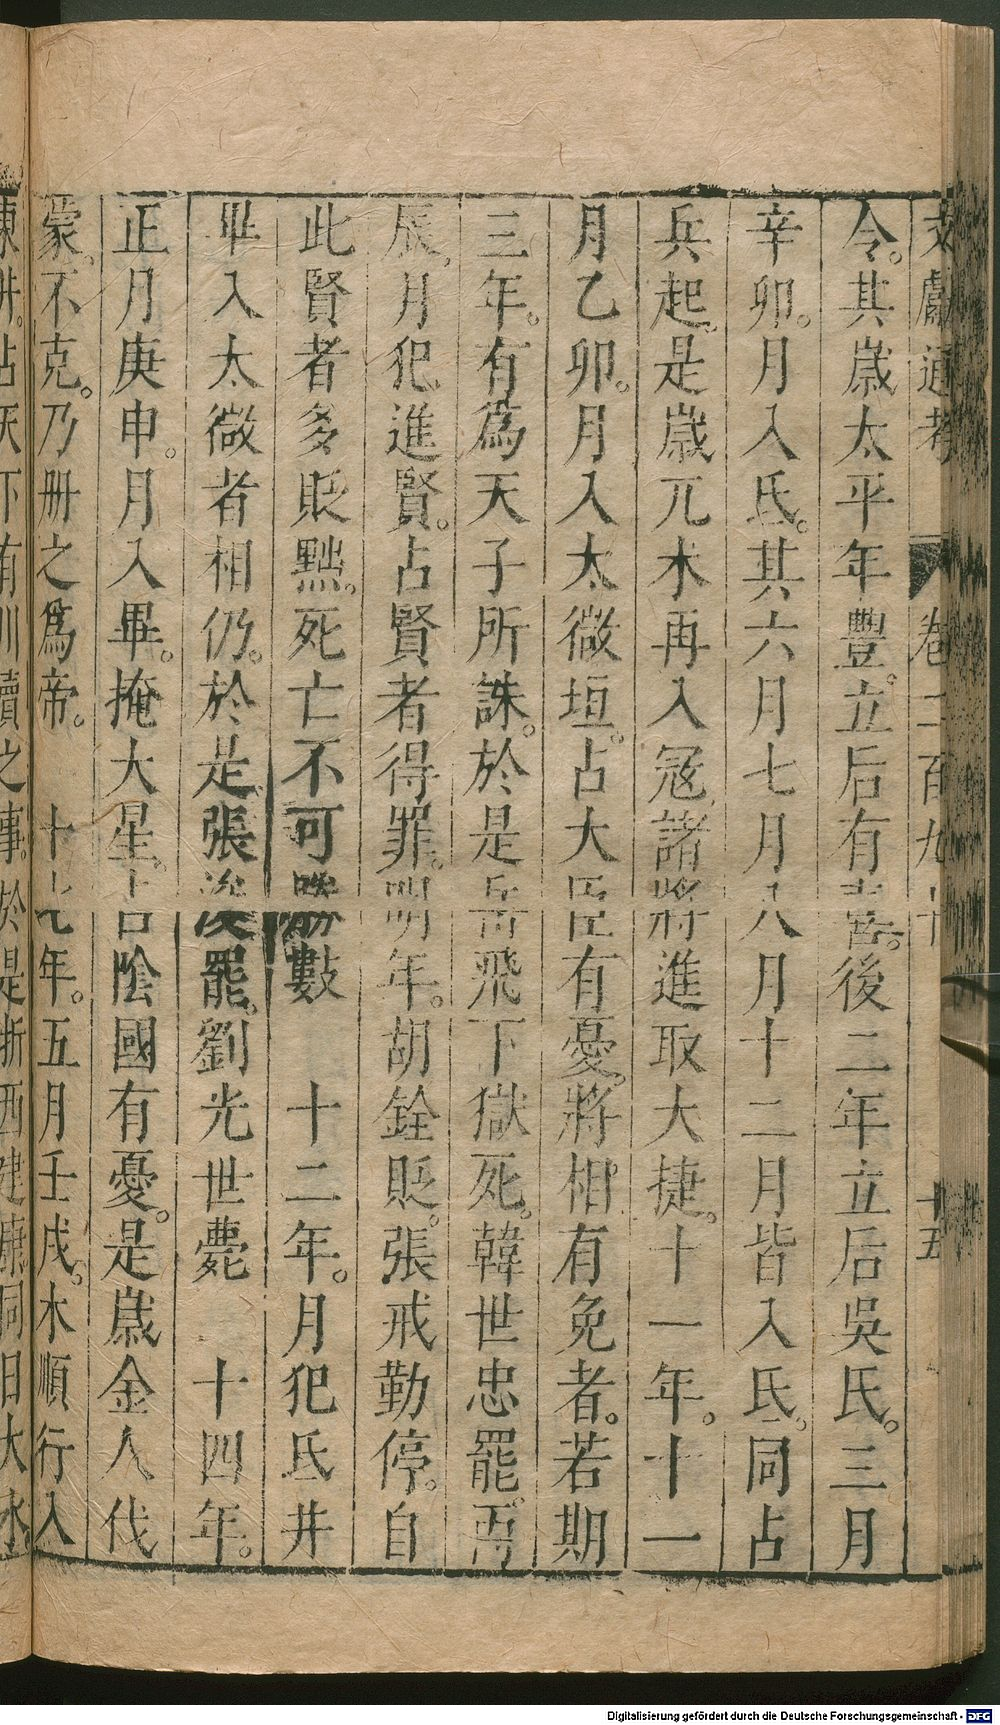 文獻通考 卷二百九十 十五
令。其歲太平年豐。立后有喜。後二年立后吳氏。三月
辛卯。月入氐。其六月七月八月十二月皆入氐。同占
兵起。是歲兀朮再入寇諸將進取大捷。十一年。十一
月乙卯。月入太微垣。占大臣有憂。將相有免者。若期
三年。有爲天子所誅。於是岳飛下獄死。韓世忠罷。丙
辰。月犯進賢。占賢者得罪。明年。胡銓貶。張戒勒停。自
此賢者多貶黜。死亡不可勝數 十二年。月犯氐井
畢入太微者相仍。於是張浚罷。劉光世薨 十四年。
正月庚申。月入畢。掩大星。占陰國有憂。是歲金人伐
蒙。不克。乃册之爲帝。 十七年。五月壬戌。水順行入
東井。占天下有川瀆之事。於是浙西建康同日大水
Digitalisierung gefördert durch die Deutsche Forschungsgemeinschaft - DFG